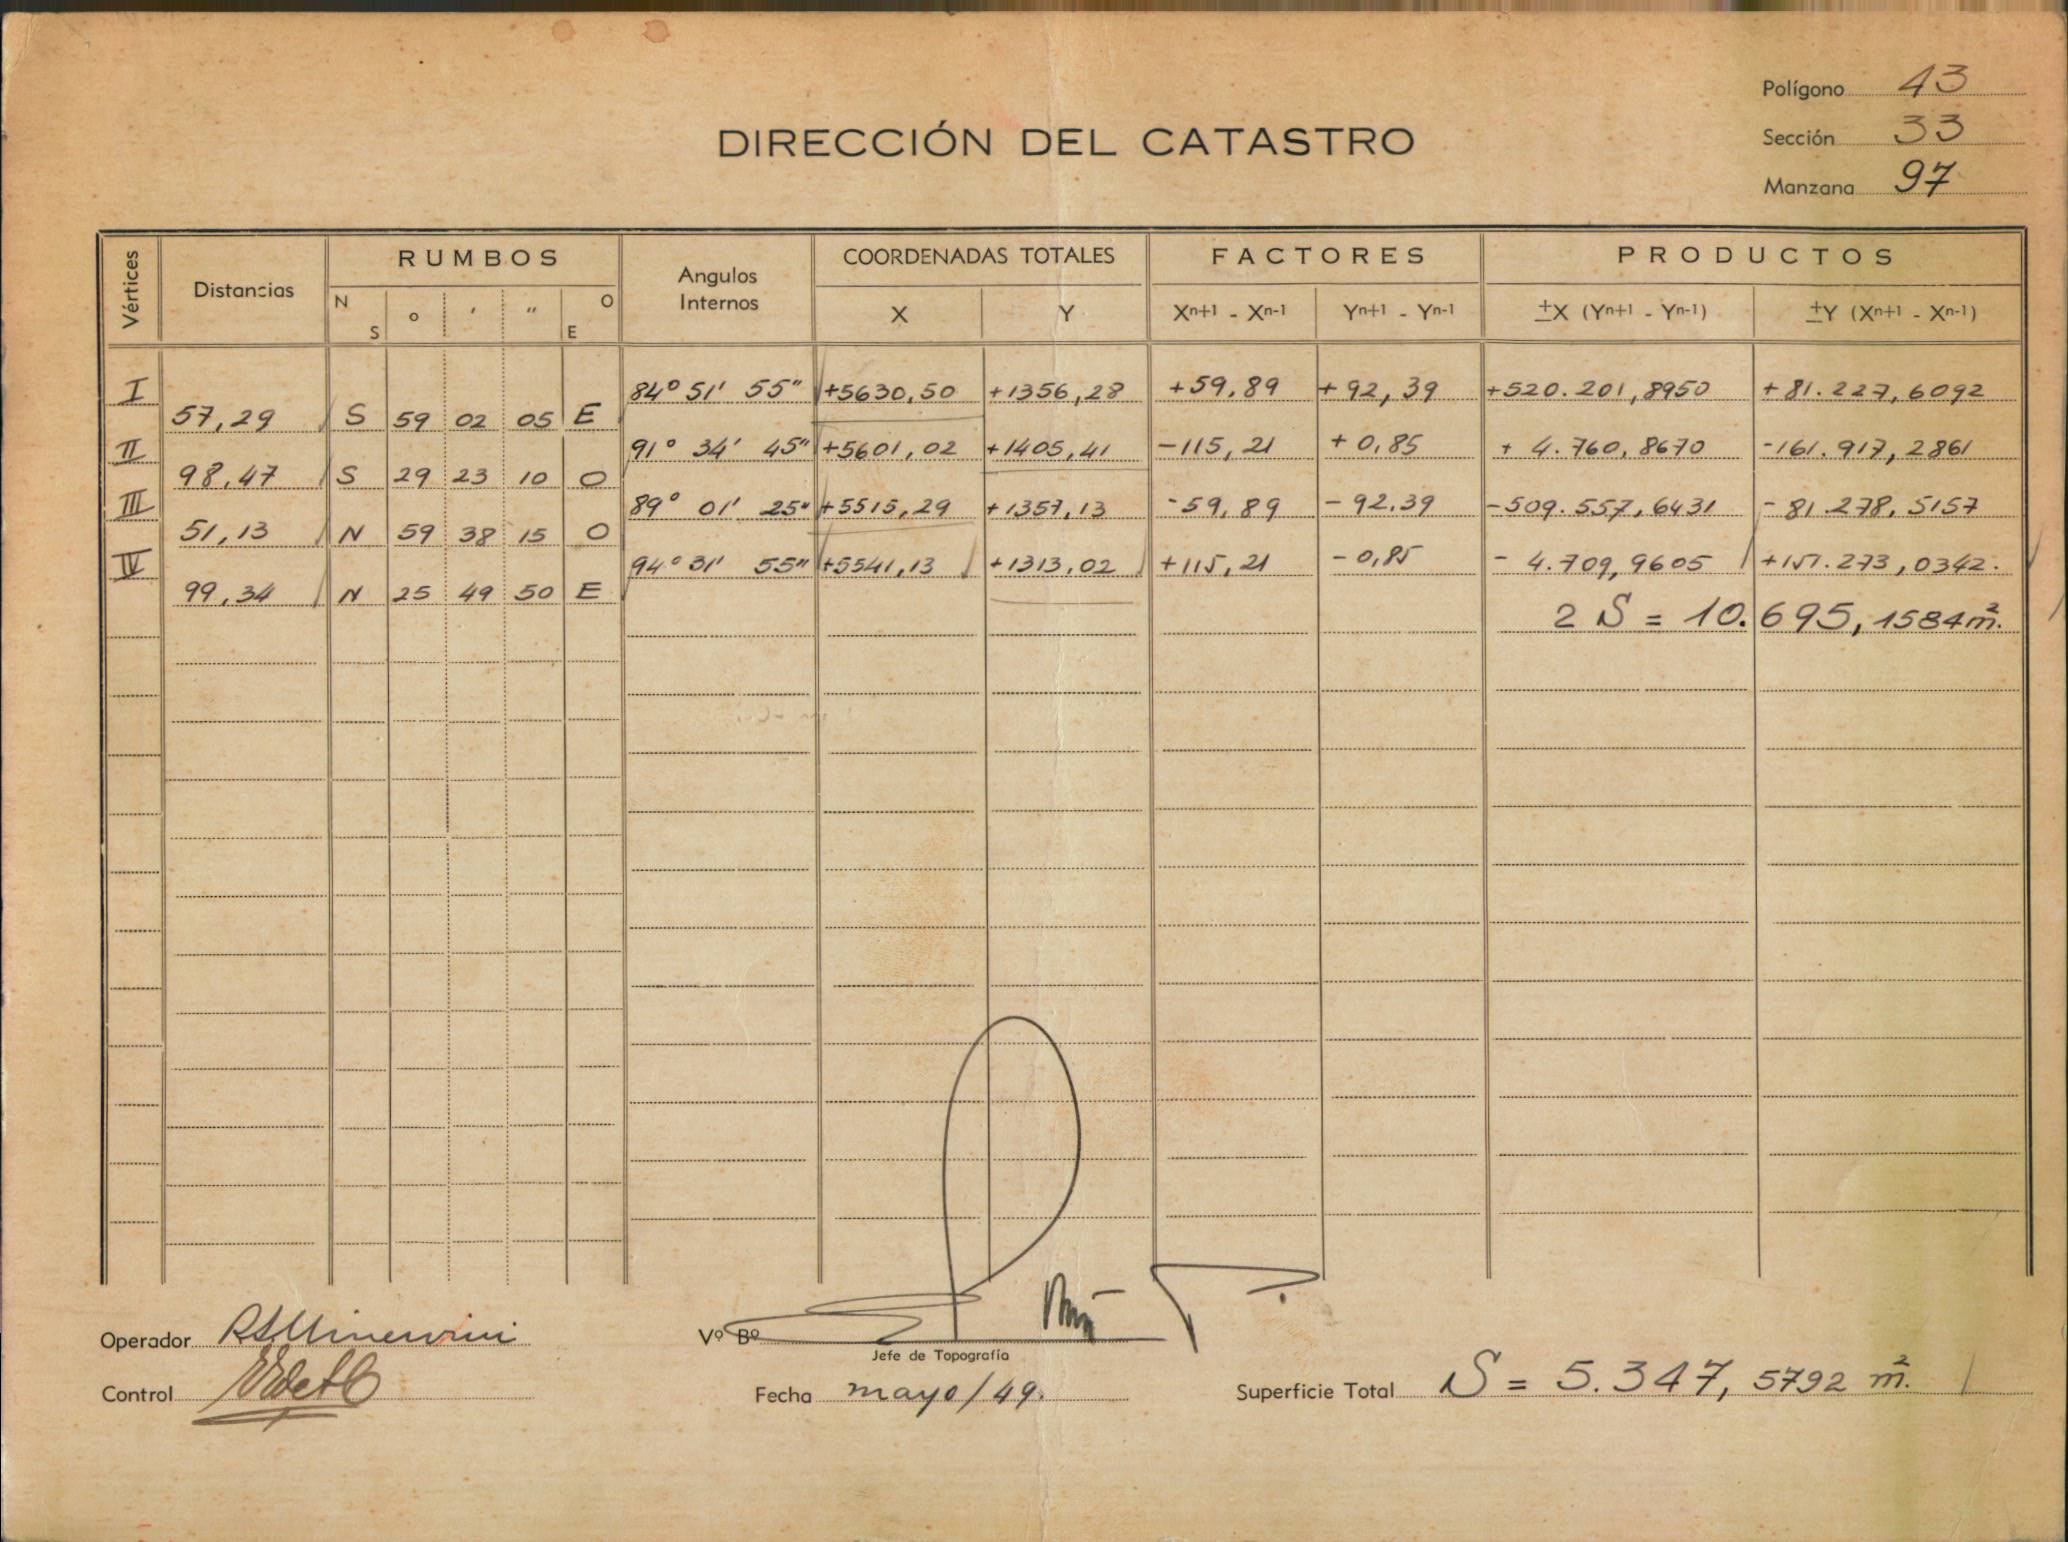 Polígono 43
DIRECCIÓN DEL CATASTRO
Sección 33
Manzana 97
Vértices Distancias RUMBOS Angulos Internos COORDENADAS TOTALES FACTORES PRODUCTOS
N S o ' " O E X Y Xn+1 - Xn-1 Yn+1 - Yn-1 ±X (Yn+1 - Yn-1) ±Y (Xn+1 - Xn-1)
I 84° 51' 55" +5630,50 +1356,28 +59,89 +92,39 +520.201,8950 +81.227,6092
57,29 S 59 02 05 E
II 91° 34' 45" +5601,02 +1405,41 -115,21 +0,85 + 4.760,8670 -161.917,2861
98,47 S 29 23 10 O
III 89° 01' 25" +5515,29 +1357,13 -59,89 -92,39 -509.557,6431 -81.278,5157
51,13 N 59 38 15 O
IV 94° 31' 55" +5541,13 +1313,02 +115,21 -0,85 - 4.709,9605 +151.273,0342.
99,34 N 25 49 50 E
2 S = 10.695,1584 m².
Operador RLMinervini
Vº Bº
Jefe de Topografía
Control
Fecha mayo/49.
Superficie Total S = 5.347,5792 m².